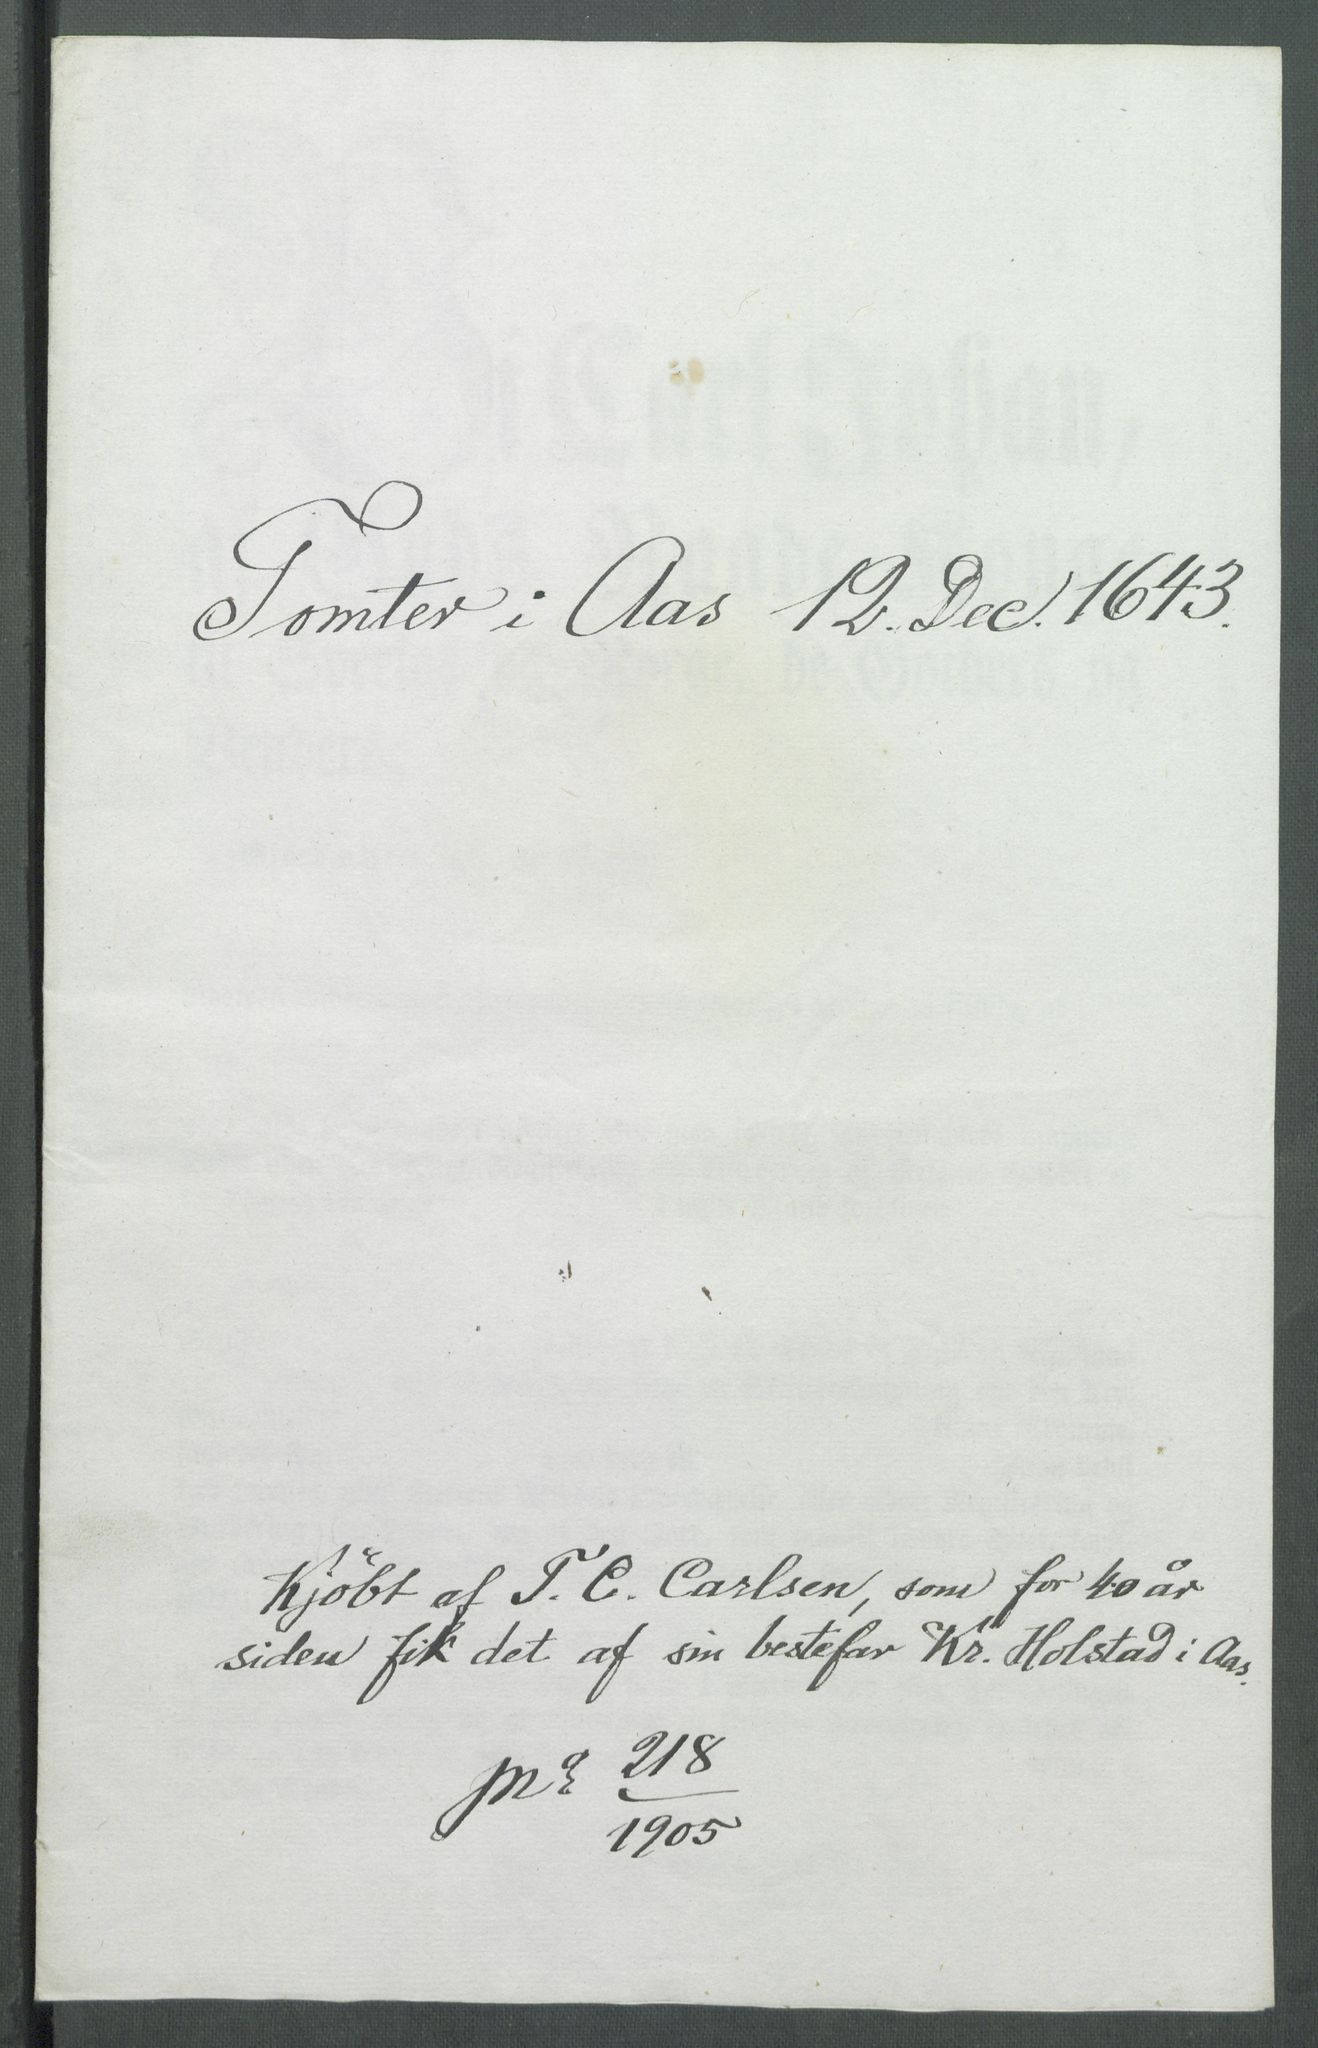 Tomter i Aas 12. Dec. 1643.
Kjöbt af T. C. Carlsen, som for 40 år
siden fik det af sin bestefar Kr. Holstad i Aas.
218
1905